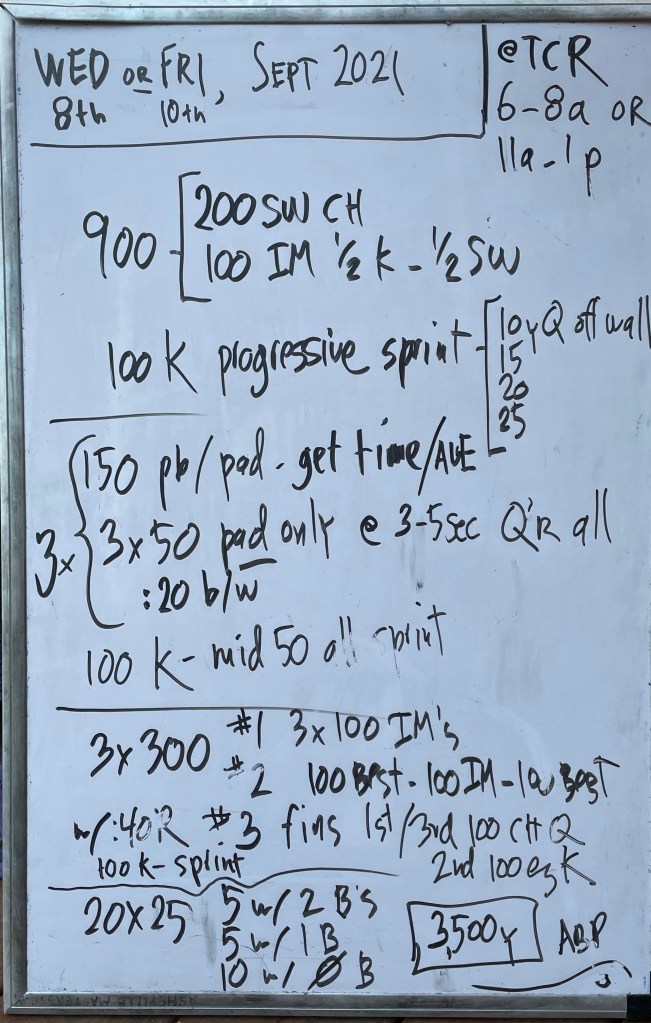 WED OR FRI, SEPT 2021
8th 10th
@TCR
6-8a OR
11a-1p
900 [200 SW CH
100 IM 1/2 K - 1/2 SW
100 K progressive sprint [10y Q off wall
15
20
25
3x {150 pb/pad - get time/AVE
3x50 pad only @ 3-5sec Q'R all
:20 b/w
100 K - mid 50 all sprint
3x300 #1 3x100 IM's
#2 100 BEST - 100 IM - 100 BEST
w/:40R #3 fins 1st/3rd 100 CH Q
100 K - sprint 2nd 100 ez K
20x25 5 w/ 2 B's
5 w/ 1 B
10 w/ Ø B
3,500y ABP